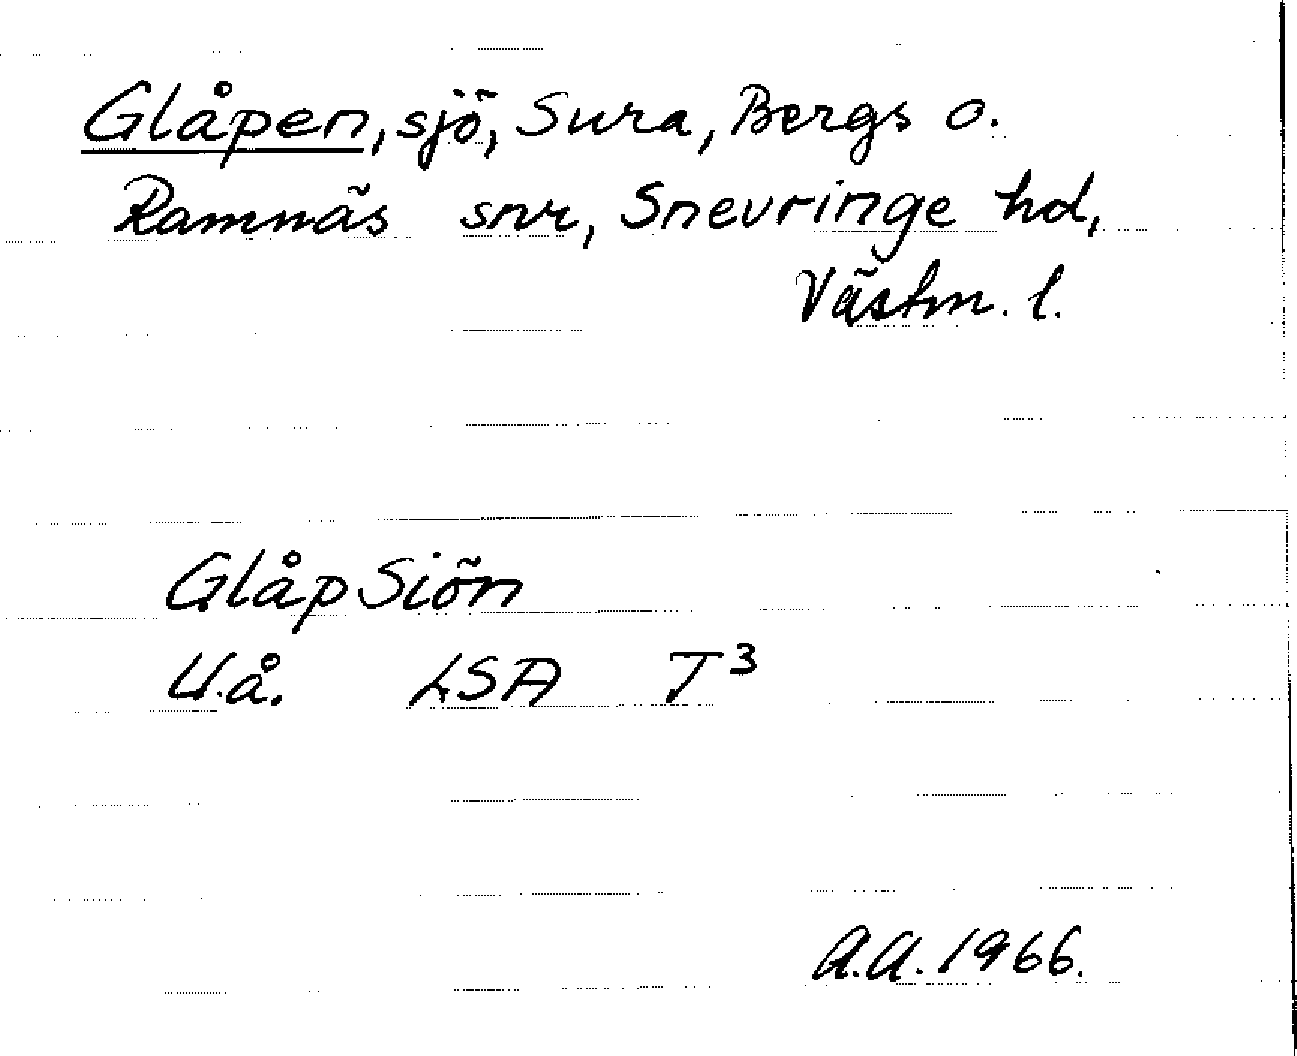 Glåpen, sjö, Sura, Bergs o.
Ramnäs snr, Snevringe hd,
Västm. l.
Glåp Siön
U.å. LSA T³
A.A. 1966.